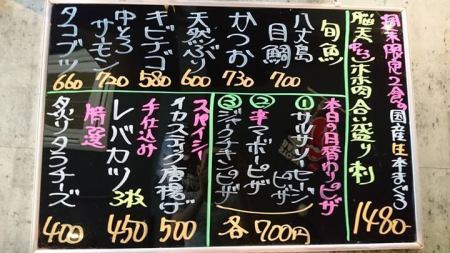 週末限定2食!!国産生本まぐろ
脳天 中とろ ホホ肉合い盛り刺
1480-
旬魚
八丈島
目鯛 700
かつお 730
天然ぶり 600
キビナゴ 580
中とろサーモン 720
タコブツ 660
本日の日替わりピザ
①サルサソーセージピザ
②辛マーボーピザ
③ジャークチキンピザ
各700円
スパイシー
イカスティック唐揚げ 500
手仕込み
レバカツ 3枚 450
炙りタラチーズ 400